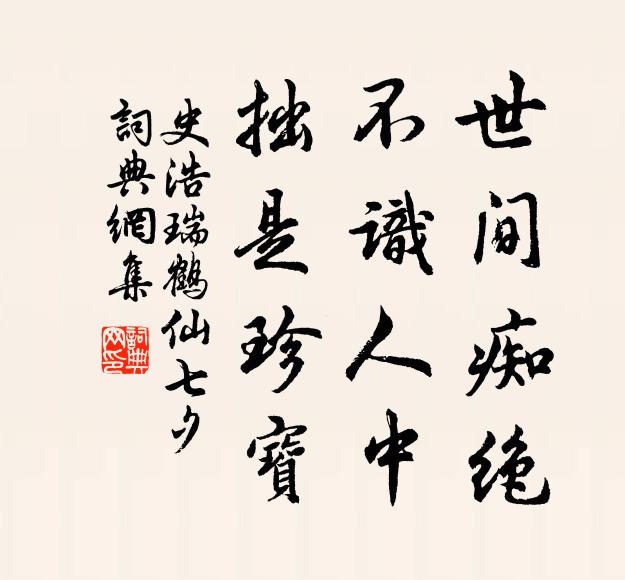 世間痴绝
不識人中
拙是珍寶
史浩瑞鶴仙七夕
詞典網集
詞典網印